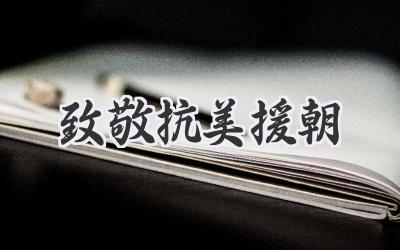 致敬抗美援朝